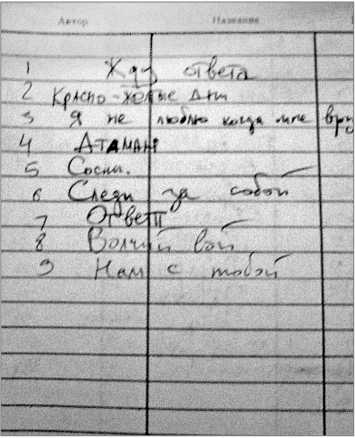 Автор Название
1 Жду ответа
2 Красно-жолтые дни
3 Я не люблю когда мне вру
4 Атаман
5 Сосны.
6 Следи за собой
7 Ответ
8 Волчий вой
9 Нам с тобой